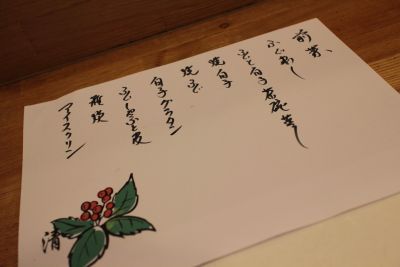 前菜、
ふぐ刺し
ふぐ白子茶碗蒸し
焼白子
焼ふぐ
白子グラタン
ふぐしゃぶと皮
雑炊
アイスクリン
清